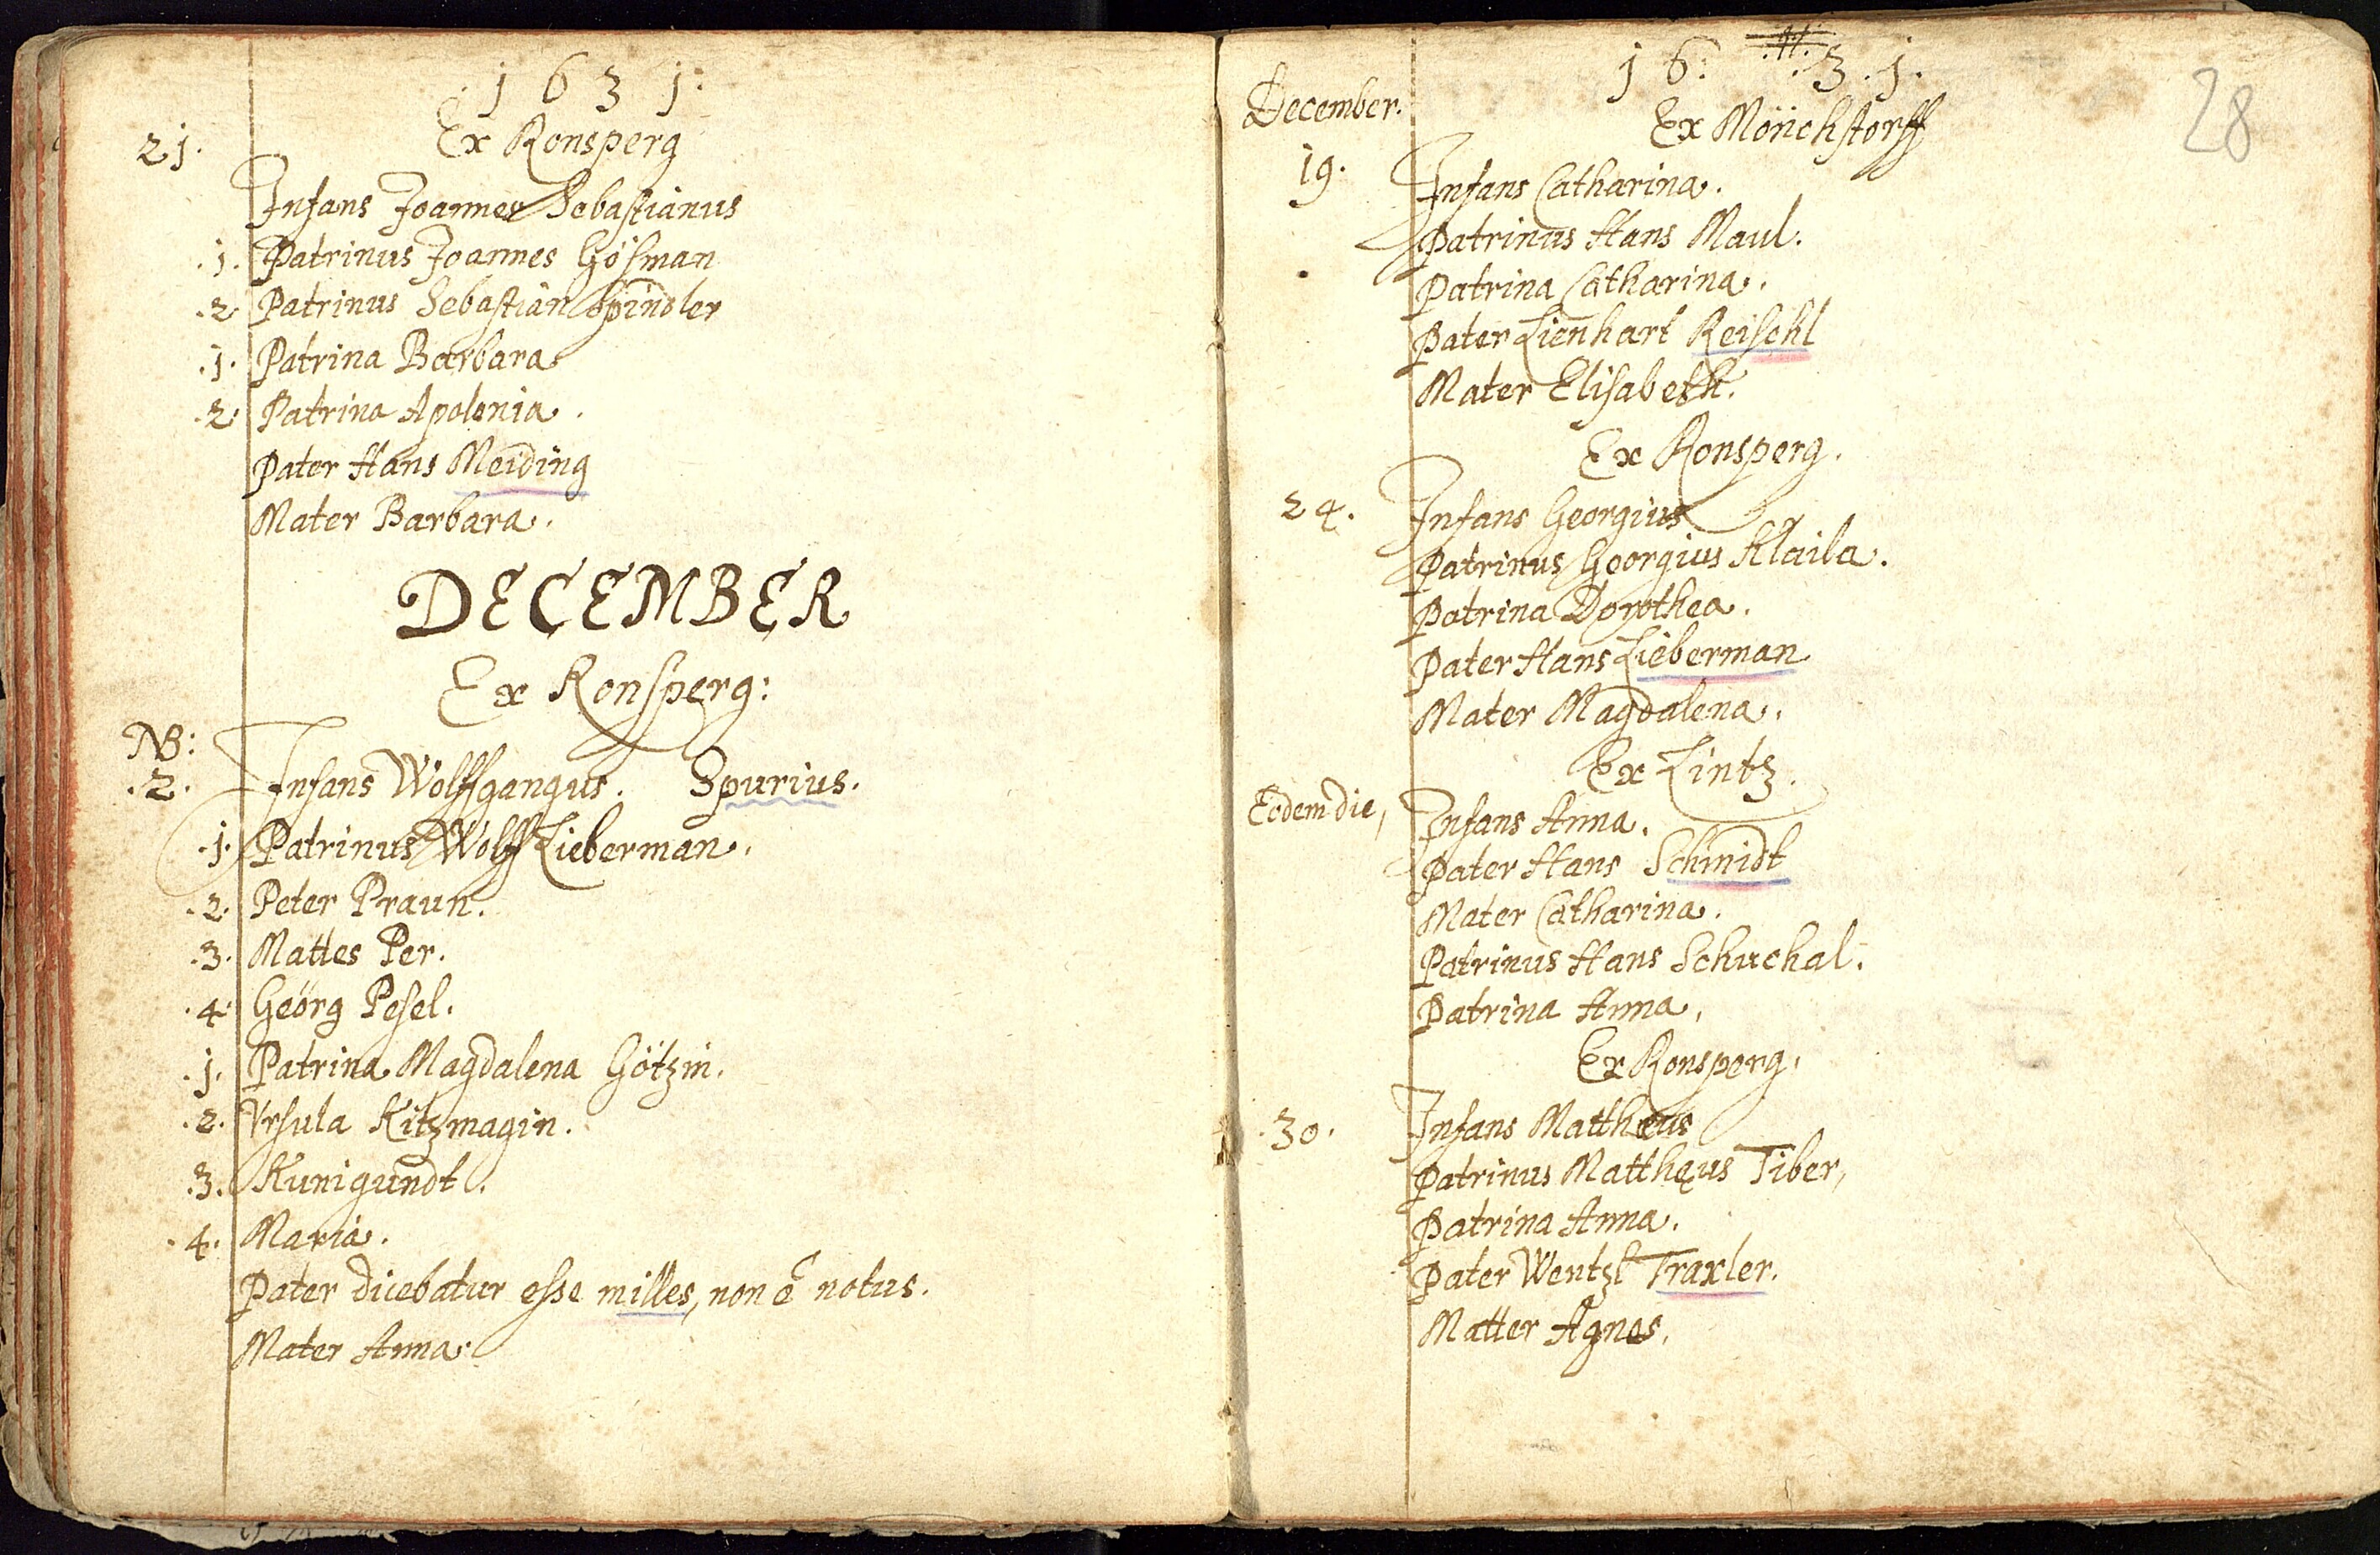 1 6 3 1:
Ex Ronsperg
21.
Infans Joannes Sebastianus
.1. Patrinus Joannes Gößman
.2. Patrinus Sebastian Spindler
.1. Patrina Barbara
.2. Patrina Apolonia.
Pater Hans Meiding
Mater Barbara.
DECEMBER
Ex Ronsperg:
NB:
.2. Infans Wolffgangus. Spurius.
.1. Patrinus Wolff Lieberman.
.2. Peter Praun.
.3. Mattes Per.
.4. Geörg Pesel.
.1. Patrina Magdalena Götzin.
.2. Vrsula Kitzmagin.
.3. Kunigundt.
.4. Maria.
Pater dicebatur esse milles, non ẽ notus.
Mater Anna.
1 6: .3.1.
28
December.
Ex Mönchstorff
19. Infans Catharina.
Patrinus Hans Maul.
Patrina Catharina.
Pater Lienhart Reischl
Mater Elisabeth.
Ex Ronsperg.
24. Infans Georgius
Patrinus Georgius Klaila.
Patrina Dorothea.
Pater Hans Lieberman
Mater Magdalena.
Ex Lintz.
Eodem die, Infans Anna.
Pater Hans Schmidt
Mater Catharina.
Patrinus Hans Schuchal.
Patrina Anna,
Ex Ronsperg,
.30. Infans Mattheus
Patrinus Matthęus Tiber,
Patrina Anna.
Pater Wentzl Traxler.
Matter Agnes,